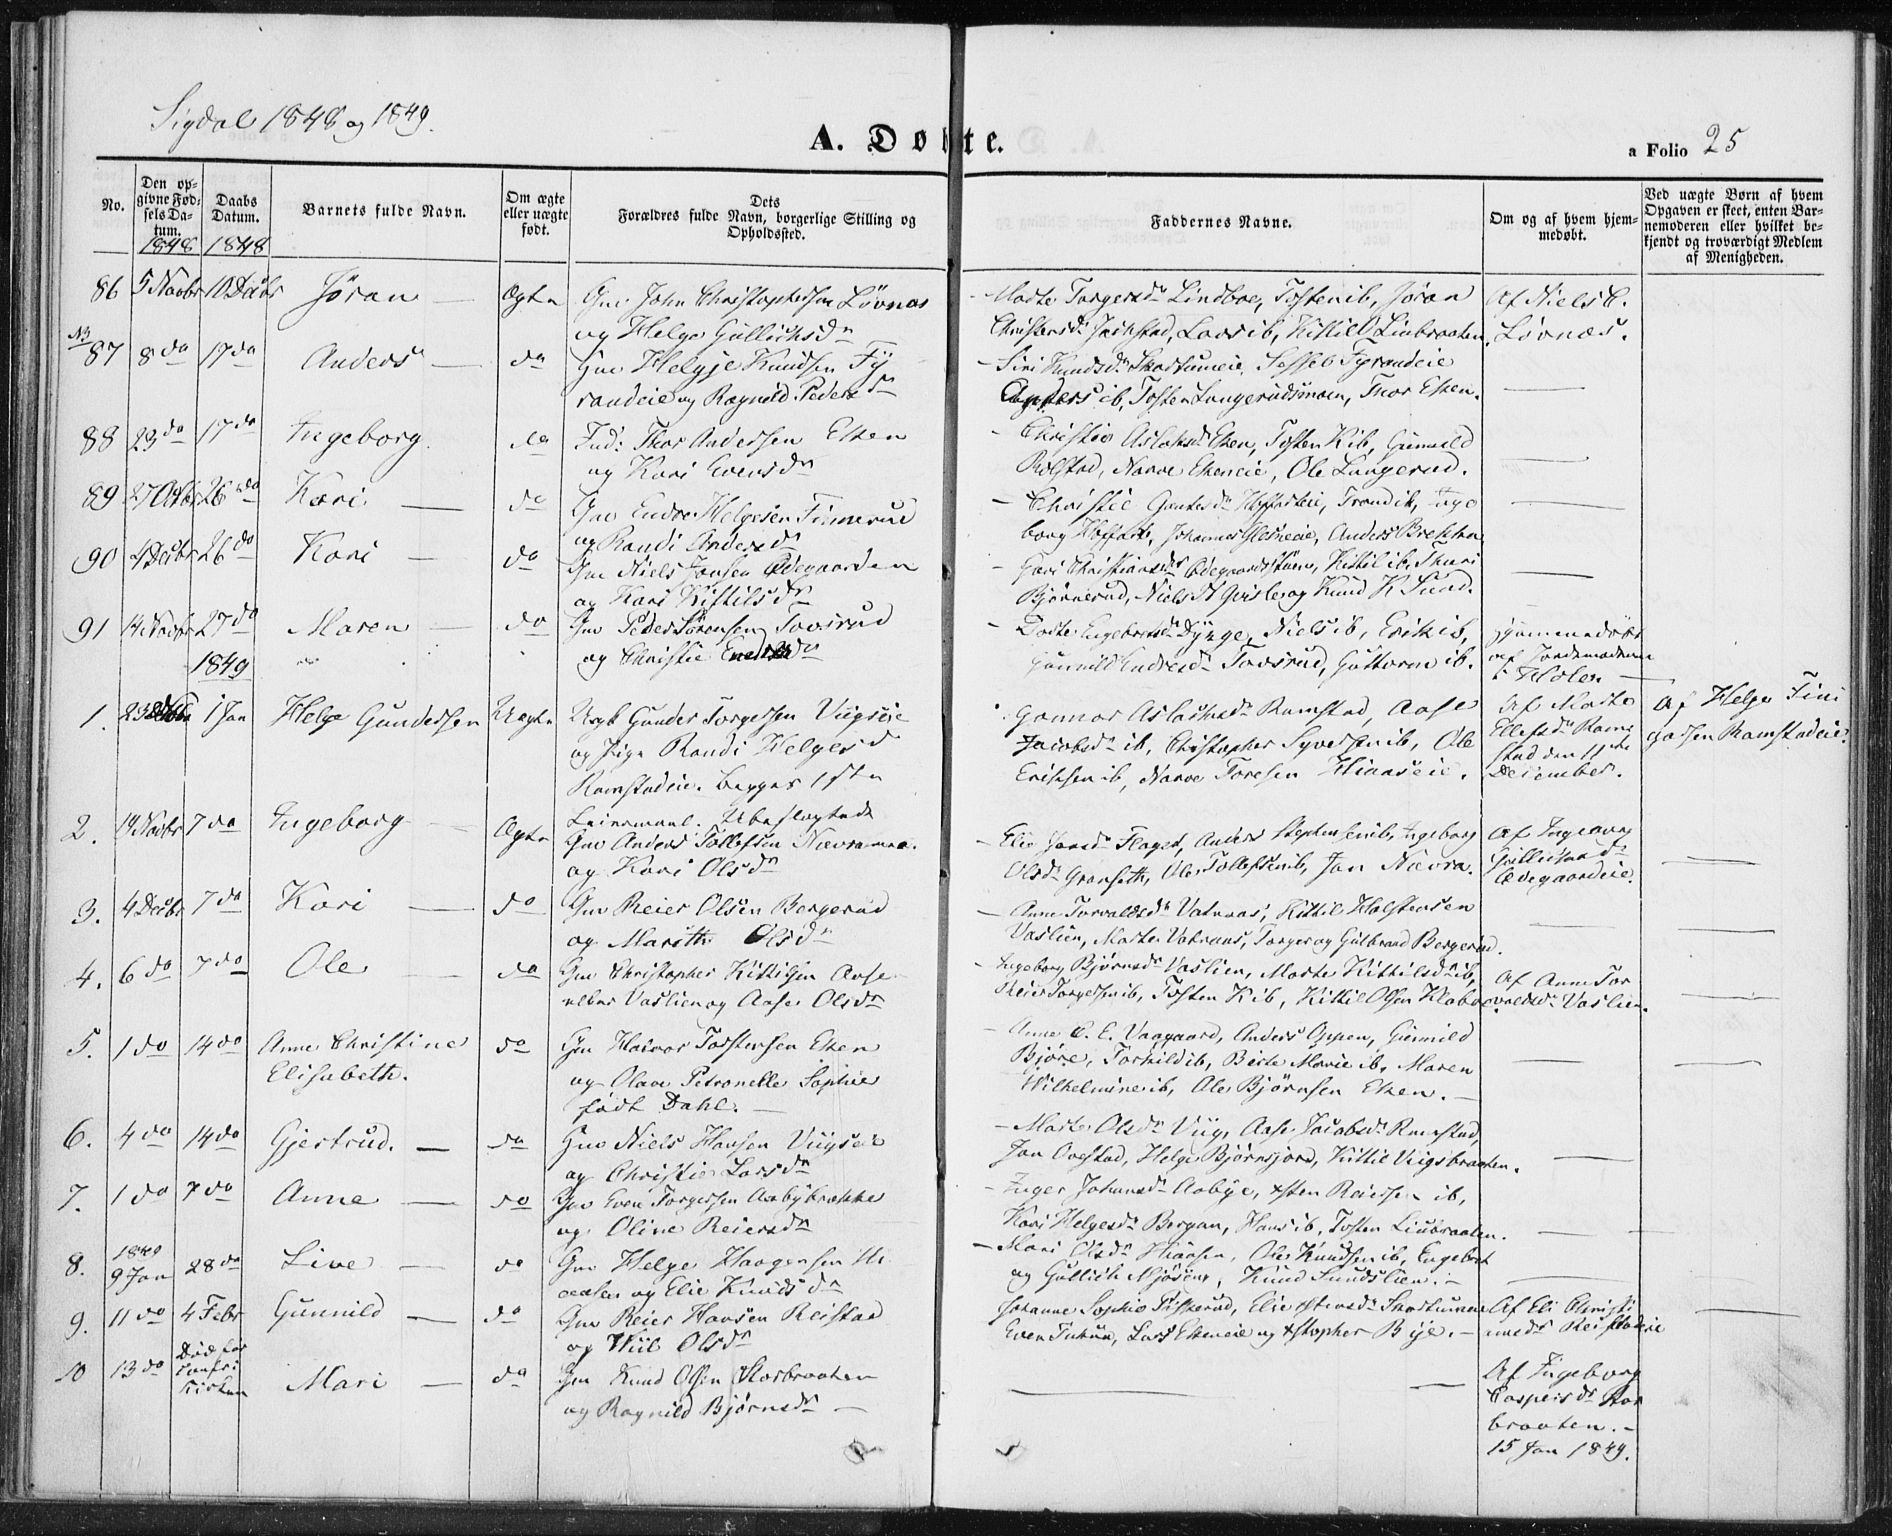 Sigdal 1848 og 1849.
A. Døbte.
a Folio 25
No.
Den op-
givne Fød-
sels Da-
tum.
1848
Daabs
Datum.
1848
Barnets fulde Navn.
Om ægte
eller uægte
født.
Dets
Forældres fulde Navn, borgerlige Stilling og
Opholdssted.
Faddernes Navne.
Om og af hvem hjem-
medøbt.
Ved uægte Børn af hvem
Opgaven er skeet, enten Bar-
nemoderen eller hvilket be-
kjendt og troværdigt Medlem
af Menigheden.
86 5 Novbr 10 Decbr Jøran — Ægte Gm John Christophersen Løvnæs
og Helge Gullichsdr
Marte Torgersdr Lindboe, Tosten ib, Jøran
Christensdr Lars ib, Kittil Linbraaten.
Af Niels C.
Løvnæs.
NB
87 8 do 17 do Anders — do Gm Helgje Knudsen Fy
randeie og Ragnild Pedersdr
Siri Knudsdr Skartumeie, Fyrandeie
Anders ib, Tosten Langerudsmoen, Thor Eken.
88 23 do 17 do Ingeborg do Thor Andersen Eken
og Kari Evensdr
Christie Aslaksdr Eken, Tosten K ib, Gunnild
Rolstad, Narve Ekeneie, Ole Langerud.
89 27 Octbr 26 do Kari — do Gm Endre Helgesen Finnerud
og Randi Andersdr
Christie Trond ib, Inge
borg Hoffart, Johannes Anders Brekke
90 4 Decbr 26 do Kari — do Gm Niels Jonsen Ødegaarden
og Kari Kittilsdr
Christiansdr Kittil ib, Thuri
Bjørnerud, Niels og Knud K Lund.
91 14 Novbr 27 do Maren — do Gm Peder Sørensen Tovsrud
og Christie
Dorte Engebretsdr Dynge, Niels ib, Erik ib,
Gunnild Endresdr Tovsrud, Guttorm ib.
Hjemmedøbt
af Jordemoderen
i Holen
1849
1. 1 Jan Helge Gundersen Uægte Ungk Gunder Torgersen Viigseie
og Pige Randi Helgesdr
Ramstadeie. Begges 1ste
Leiermaal.
Gunnor Aslaksdr Ramstad, Aase
Jacobsdr ib, Christopher Syversen ib, Ole
Eriksen ib, Narve Toresen
Af Marte
Ellefsdr Ram
stad den 11te
December.
Af Helge Fin
Ramstadeie.
2. 14 Novbr 7 do Ingeborg — Ægte Gm Anders Tollefsen Nævramoe
og Kari Olsdr
Elie Jonsdr Flaget, Anders Stephensen ib, Ingeborg
Olsdr Grønseth, Ole Tollefsen ib, Jon Nævra.
Af Ingeborg
Gullichsdr
Ødegaardeie.
3. 4 Decbr 7 do Kari — do Gm Reier Olsen Bergerud
og Marithe Olsdr
Anne Torvaldsdr Vatnaas, Kittil Holstensen
Vaslien, Marte Vatnaas, Torger og Gulbrand Bergerud.
4. 6 do 7 do Ole — do Gm Christopher Kittilsen Aase
eller Vaslien og Aase Olsdr
Ingeborg Bjørnsdr Vaslien, Marte Kittilsdr ib,
Reier Torgersen ib, Tosten K ib, Kittil Olsen
Af Anne Tor
valdsdr Vaslien.
5. 1 do 14 do Anne Christine
Elisabeth. do Gm Halvor Torstensen Eken
og Olave Petronelle Sophie
født Dahl. —
Anne C. E. Vaagaard, Anders Oppen, Gunnild
Bjøre, Torkild ib, Berte Marie ib, Maren
Wilhelmine ib, Ole Bjørnsen Eken. —
6. 4 do 14 do Gjertrud. — do Gm Niels Hansen Viigseie
og Christie Larsdr
Marte Olsdr Viig, Aase Jacobsdr Ramstad,
Jon Ovestad, Helge Bjørnsjord, Kittil Viigsbraaten.
7. 1 do 7 do Anne — do Gm Even Torgersen Aabybrække
og Oline Reiersdr
Inger Johansdr Aabye, Reiersen ib,
Kari Helgesdr Bergan, Hans ib, Tosten Linbraaten.
8. 1849
9 Jan 28 do Live — do Gm Helge Haagensen
og Elie Knudsdr
Mari Olsdr Ole Knudsen ib, Engebret
og Gullich Mjøsen, Knud Lundslien. —
9. 11 do 4 Febr Gunnild — do Gm Reier Hansen Reistad
og Olsdr
Johanne Sophie Piskerud, Elie
Even Lars Ekeneie og Bye. —
Af Eli Christi
Reistadeie
10 13 do Død før
Daab i
Kirken Mari — do Gm Knud Olsen Storbraaten
og Ragnild Bjørnsdr —
Af Ingeborg
Caspersdr Stor
braaten. —
15 Jan 1849.